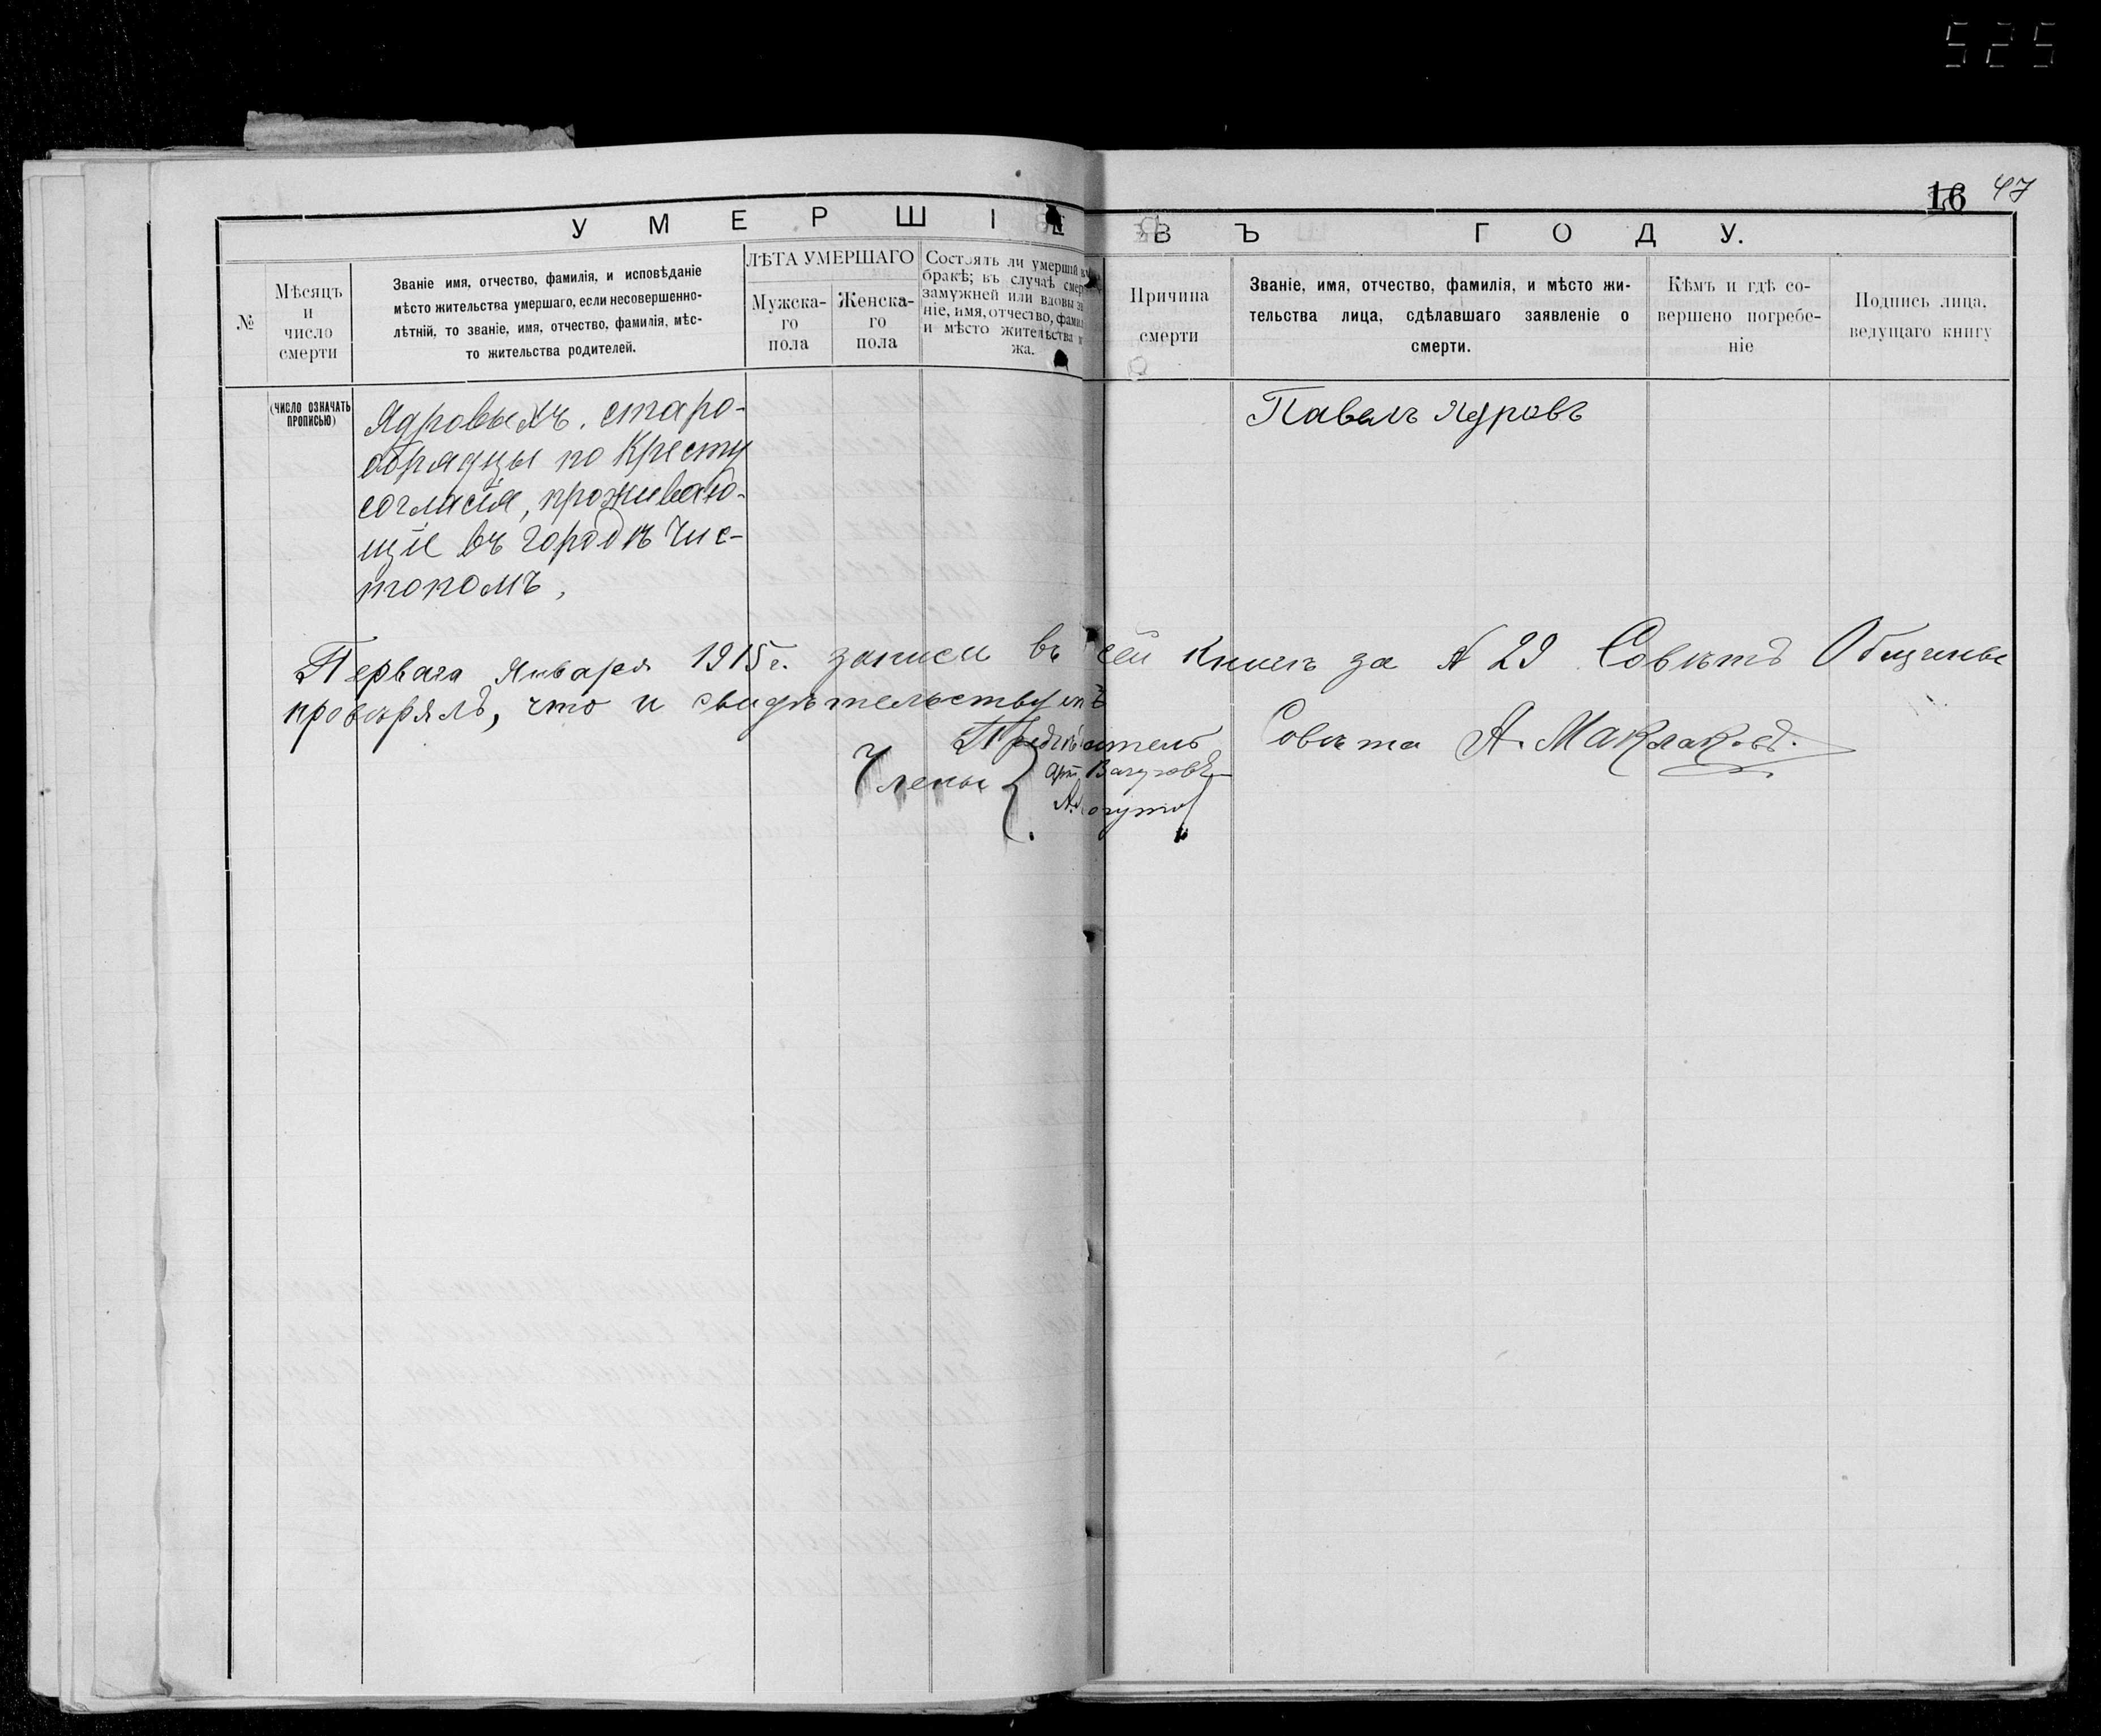 525
16 47
УМЕРШІЕ ВЪ ГОДУ.
№
Мѣсяцъ
и
число
смерти
Званіе имя, отчество, фамилія, и исповѣданіе
мѣсто жительства умершаго, если несовершенно-
лѣтній, то званіе, имя, отчество, фамилія, мѣс-
то жительства родителей.
ЛѢТА УМЕРШАГО
Мужска-
го
пола
Женска-
го
пола
Состоялъ ли умершій
бракѣ; въ случаѣ
замужней или вдовы
ніе, имя, отчество,
и мѣсто жительства
жа.
Причина
смерти
Званіе, имя, отчество, фамилія, и мѣсто жи-
тельства лица, сдѣлавшаго заявленіе о
смерти.
Кѣмъ и гдѣ со-
вершено погребе-
ніе
Подпись лица,
ведущаго книгу
(ЧИСЛО ОЗНАЧАТЬ
ПРОПИСЬЮ)
Ядровыхъ. старо-
обрядцы по Кресту
согласія, проживаю-
щіе въ городѣ Чис-
тополѣ,
Павелъ Ядровъ
Перваго Января 1915 г. записи въ сей книгѣ за № 29 Совѣтъ Общины
провѣрялъ, что и свидѣтельствуетъ
Предсѣдатель Совѣта А. Маклаковъ.
Члены